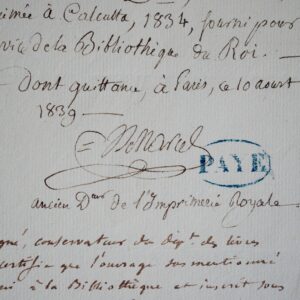 imée à Calcutta, 1834, fourni pour
vice de la Bibliothèque du Roi. —
Dont quittance, à Paris, ce 10 aout
1839 —
PAYÉ
ancien Deur de l'Imprimerie Royale
gné, conservateur du dépt. des livres
certifie que l'ouvrage sus mentionné
à la Bibliothèque et inscrit sous